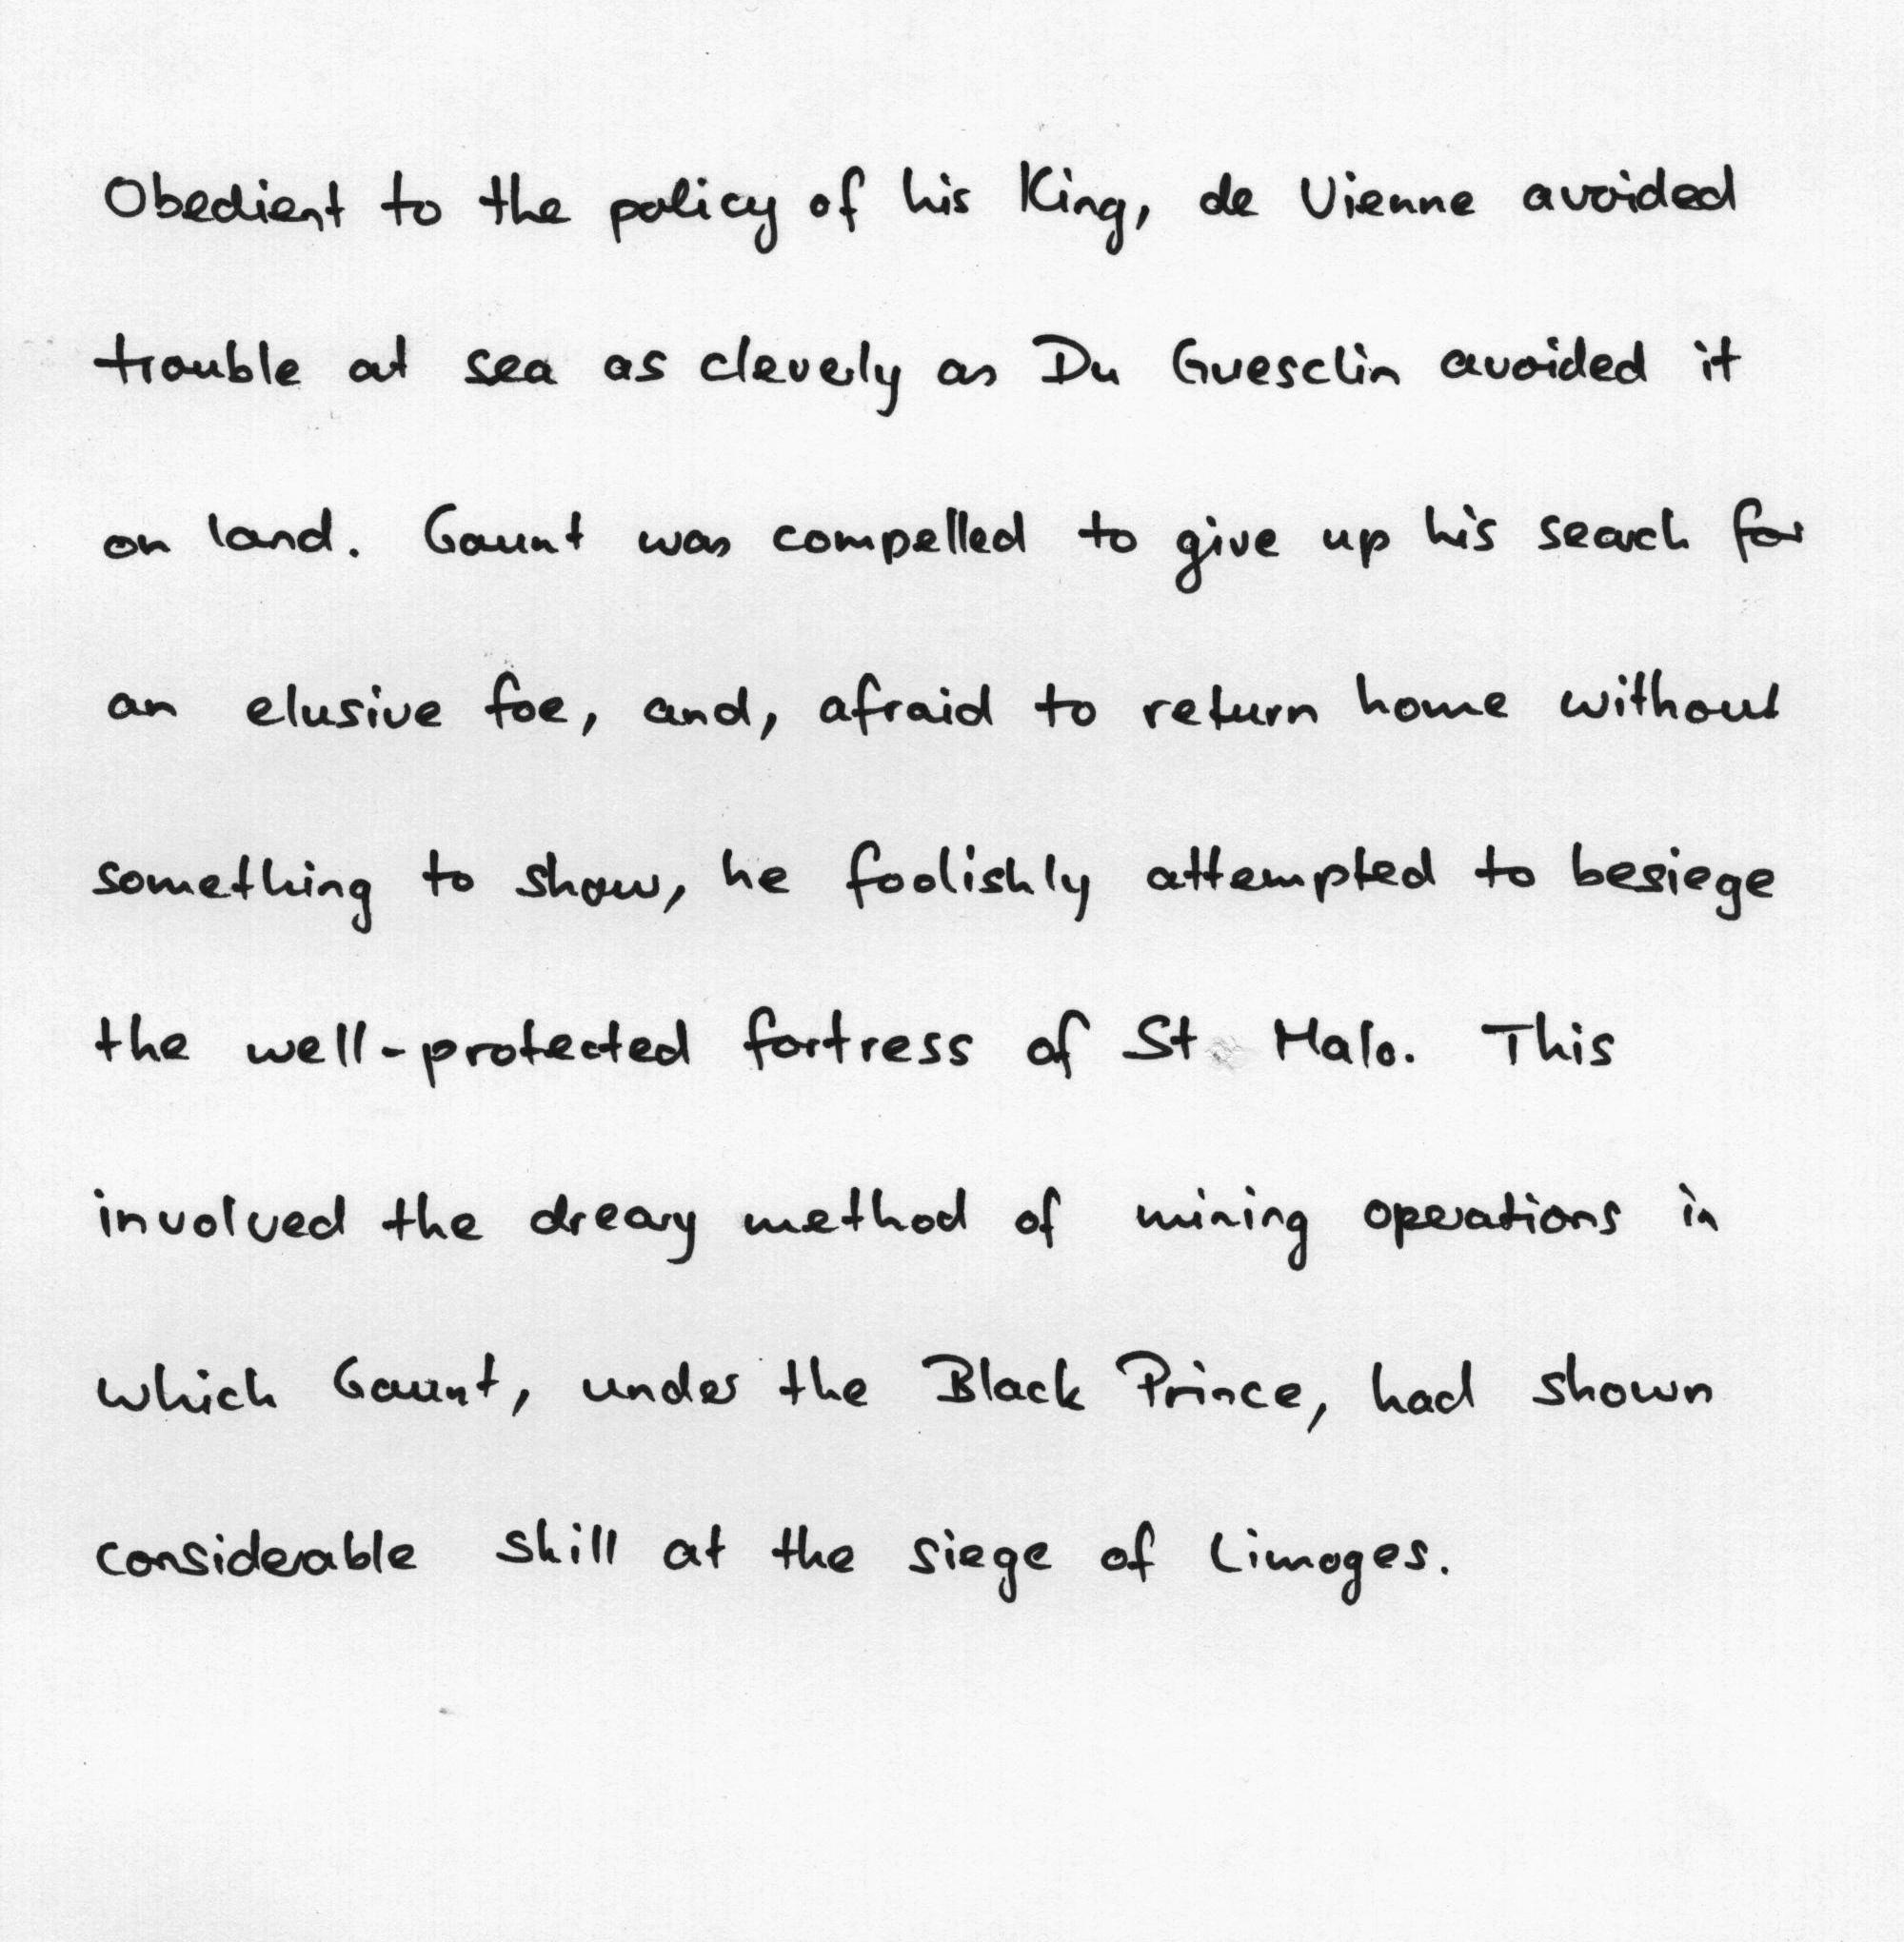 Obedient to the policy of his King, de Vienne avoided
trouble at sea as cleverly as Du Guesclin avoided it
on land. Gaunt was compelled to give up his search for
an elusive foe, and, afraid to return home without
something to show, he foolishly attempted to besiege
the well-protected fortress of St. Malo. This
involved the dreary method of mining operations in
which Gaunt, under the Black Prince, had shown
considerable skill at the siege of Limoges.